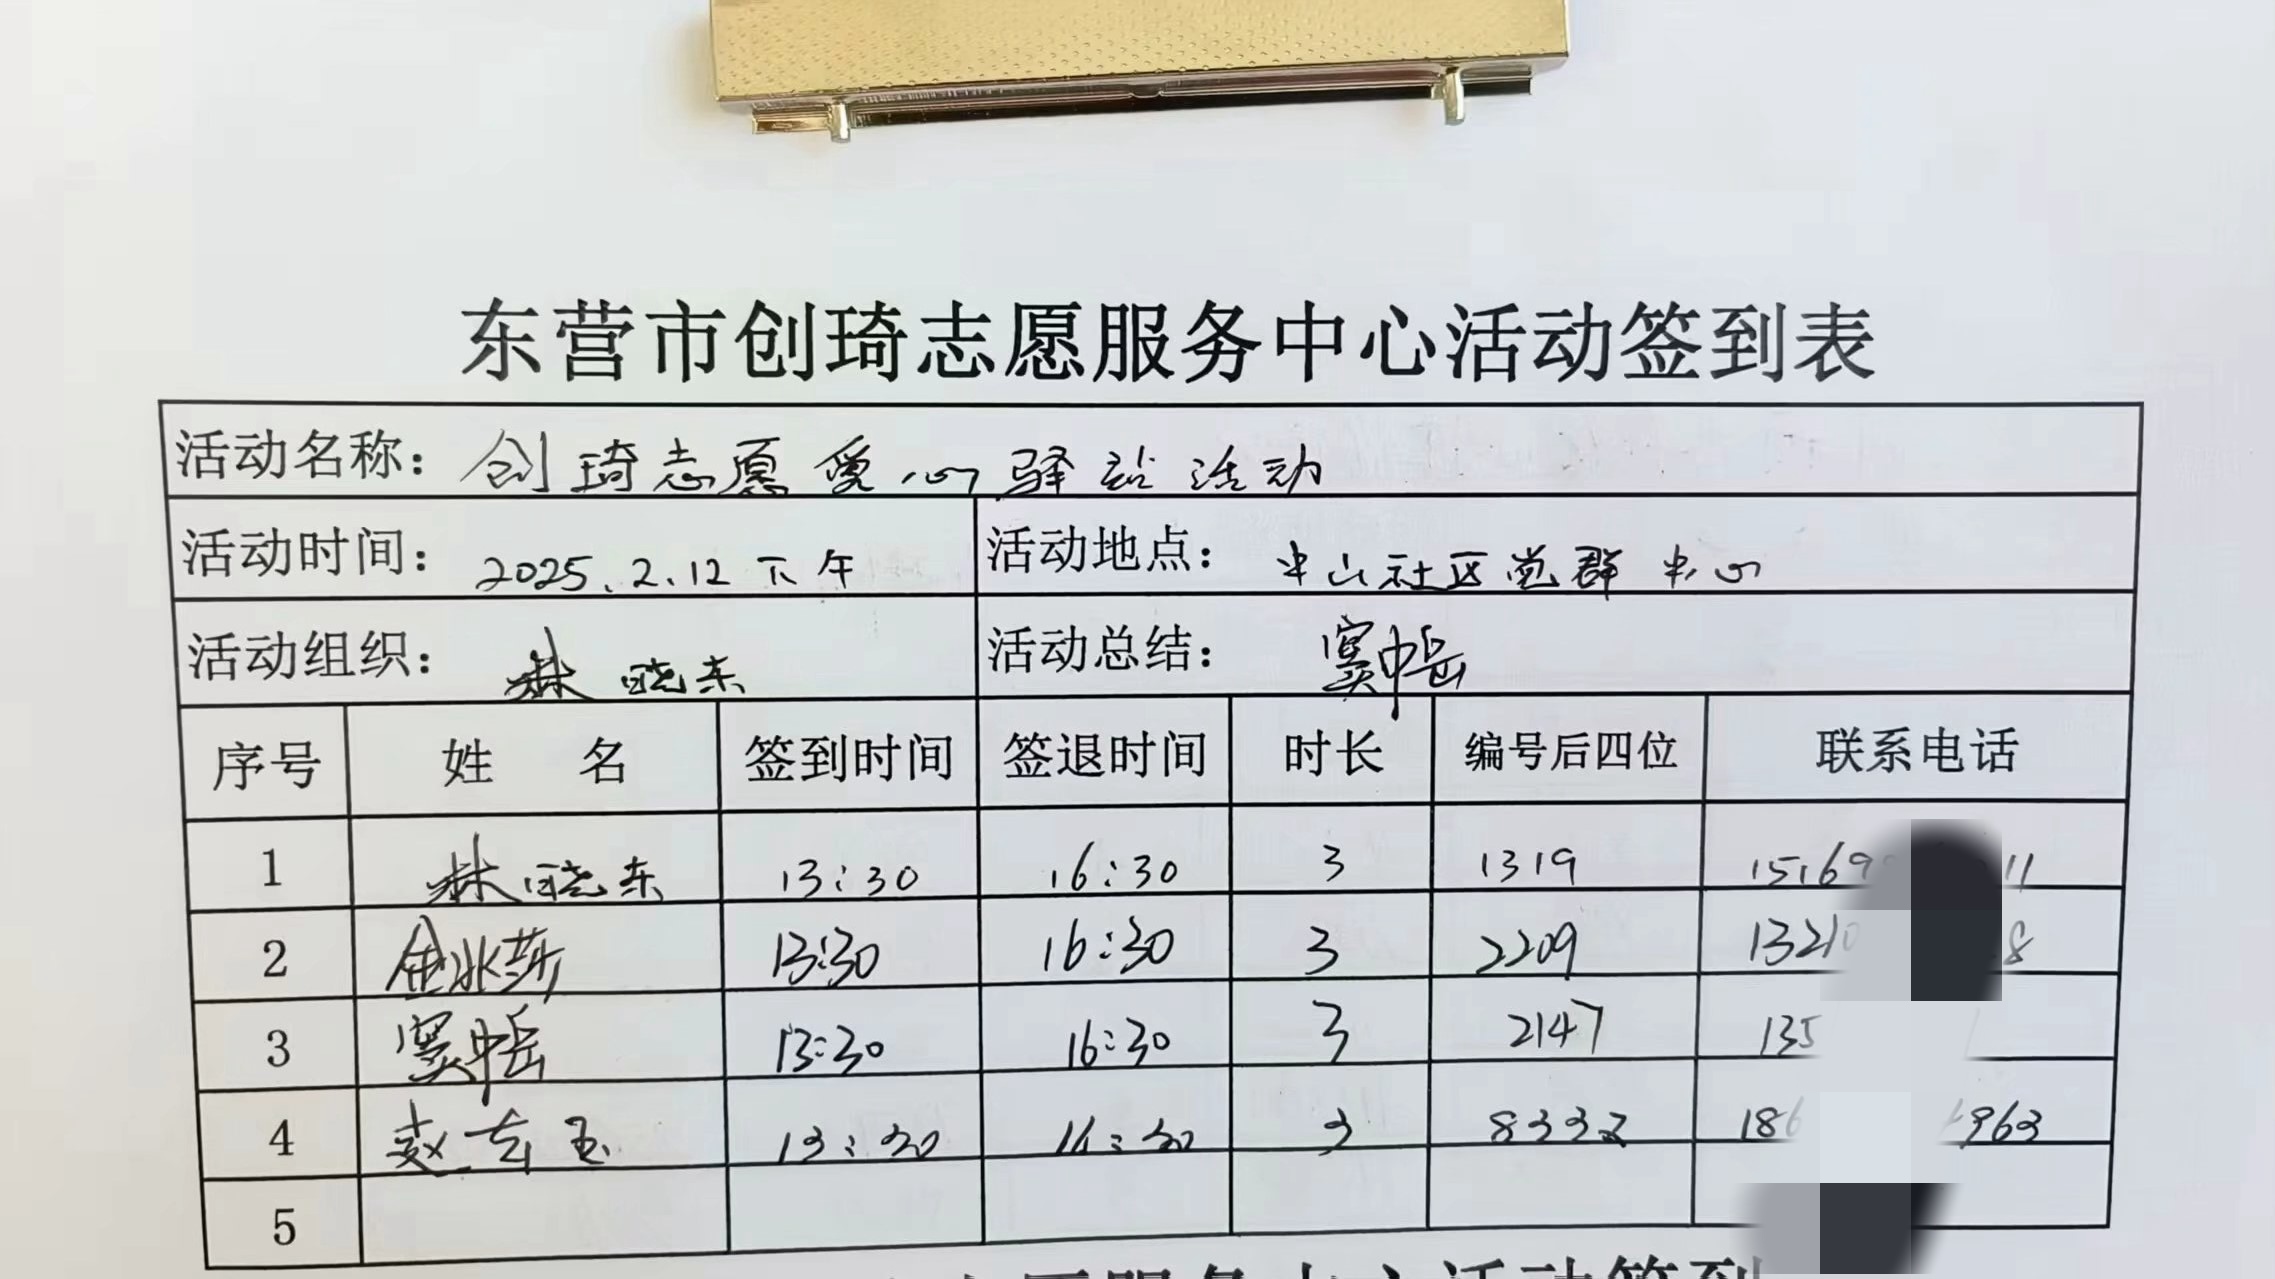 东营市创琦志愿服务中心活动签到表
活动名称：创琦志愿爱心驿站活动
活动时间：2025.2.12下午 活动地点：中山社区党群中心
活动组织：林晓东 活动总结：窦中岳
序号 姓 名 签到时间 签退时间 时长 编号后四位 联系电话
1 林晓东 13:30 16:30 3 1319 15169 11
2 金兆莎 13:30 16:30 3 2209 13210 8
3 窦中岳 13:30 16:30 3 2147 135
4 赵吉玉 13:30 16:30 3 8332 186 963
5
志愿服务中心活动签到